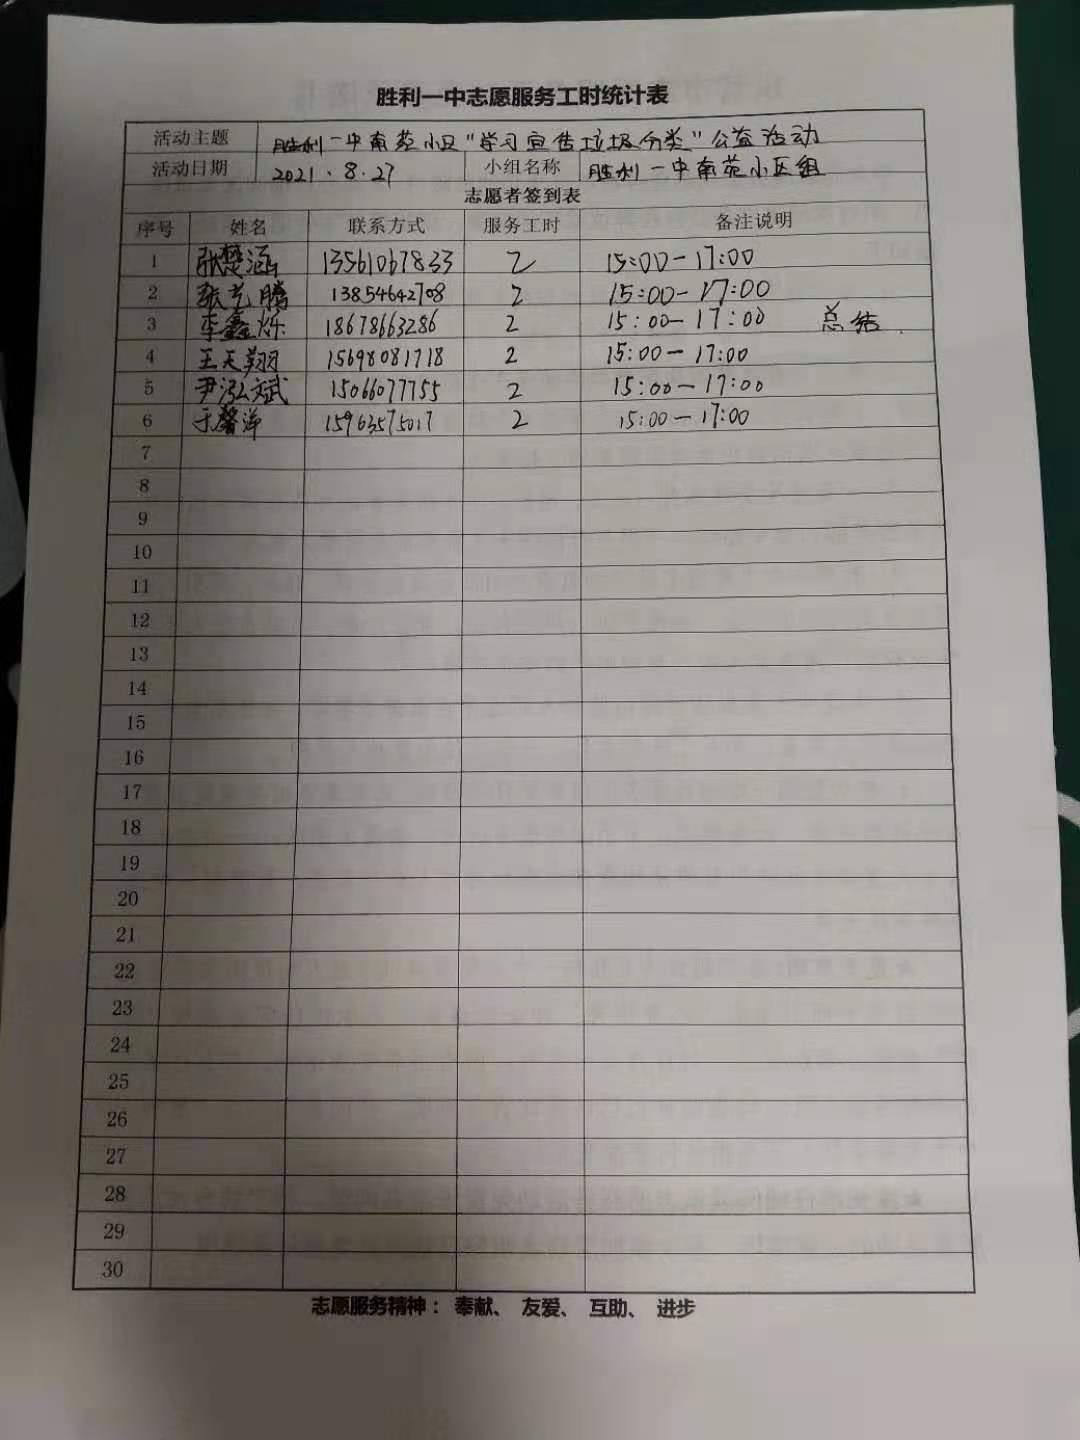 胜利一中志愿服务工时统计表
活动主题 胜利一中南苑小区"学习宣传垃圾分类"公益活动
活动日期 2021.8.27 小组名称 胜利一中南苑小区组
志愿者签到表
序号 姓名 联系方式 服务工时 备注说明
1 张楚涵 13561067833 2 15:00-17:00
2 张艺腾 13854642708 2 15:00-17:00
3 李鑫烁 18678663286 2 15:00-17:00 总结.
4 王天翔 15698081718 2 15:00-17:00
5 尹泓斌 15066077755 2 15:00-17:00
6 于馨洋 15963575017 2 15:00-17:00
7
8
9
10
11
12
13
14
15
16
17
18
19
20
21
22
23
24
25
26
27
28
29
30
志愿服务精神：奉献、友爱、互助、进步